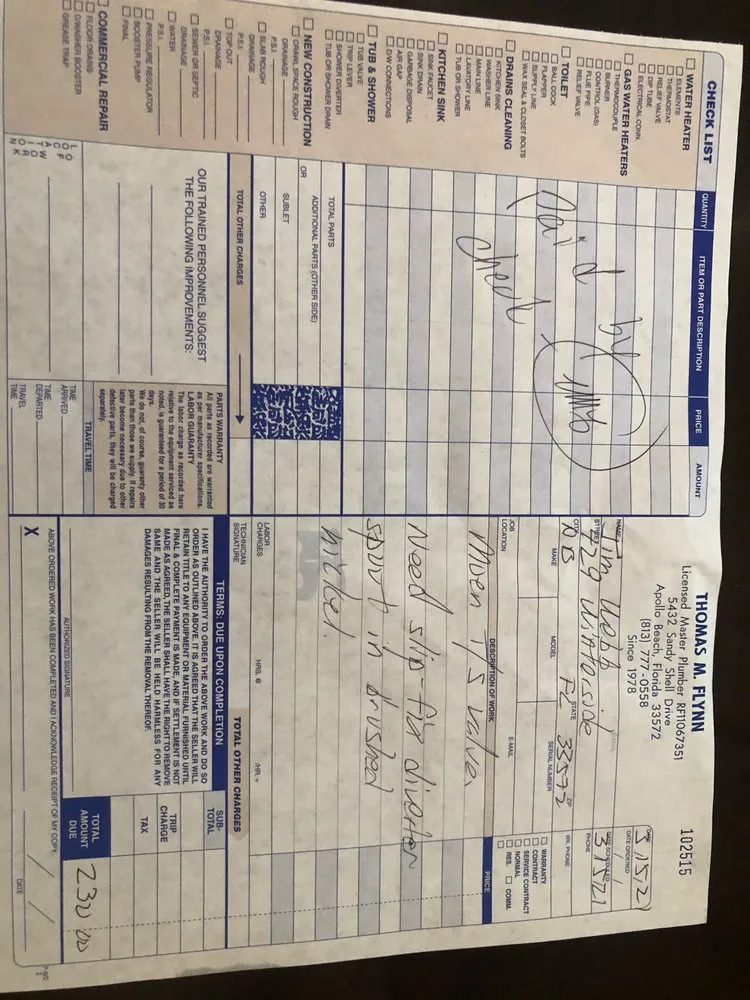 THOMAS M. FLYNN
Licensed Master Plumber RF11067351
5432 Sandy Shell Drive
Apollo Beach, Florida 33572
(813) 777-0558
Since 1978
102515
DATE
3/15/21
DATE ORDERED
NAME
Tim Webb
STREET
429 Winterside
DATE SCHEDULED
3/15/21
PHONE
CITY
AB
STATE
FL
ZIP
33572
WK. PHONE
MAKE
MODEL
SERIAL NUMBER
WARRANTY
CONTRACT
SERVICE CONTRACT
NORMAL
RES.
COMM.
JOB LOCATION
E-MAIL
DESCRIPTION OF WORK
PRICE
Moen 1/s valve.
Need slip-fix diverter
spout in brushed
nickel.
LABOR CHARGES
HRS. @
/HR. =
TECHNICIAN SIGNATURE
TOTAL OTHER CHARGES
TERMS: DUE UPON COMPLETION
I HAVE THE AUTHORITY TO ORDER THE ABOVE WORK AND DO SO
ORDER AS OUTLINED ABOVE. IT IS AGREED THAT THE SELLER WILL
RETAIN TITLE TO ANY EQUIPMENT OR MATERIAL FURNISHED UNTIL
FINAL & COMPLETE PAYMENT IS MADE, AND IF SETTLEMENT IS NOT
MADE AS AGREED, THE SELLER SHALL HAVE THE RIGHT TO REMOVE
SAME AND THE SELLER WILL BE HELD HARMLESS FOR ANY
DAMAGES RESULTING FROM THE REMOVAL THEREOF.
AUTHORIZED SIGNATURE
SUB-TOTAL
TRIP CHARGE
TAX
TOTAL AMOUNT DUE
230 00
ABOVE ORDERED WORK HAS BEEN COMPLETED AND I ACKNOWLEDGE RECEIPT OF MY COPY.
X
DATE
CHECK LIST
WATER HEATER
ELEMENTS
THERMOSTAT
RELIEF VALVE
DIP TUBE
ELECTRICAL CONN.
GAS WATER HEATERS
THERMOCOUPLE
BURNER
CONTROL (GAS)
FLUE PIPE
RELIEF VALVE
TOILET
BALL COCK
FLAPPER
SUPPLY LINE
WAX SEAL & CLOSET BOLTS
DRAINS CLEANING
KITCHEN SINK
WASHER LINE
MAIN LINE
LAVATORY LINE
TUB OR SHOWER
KITCHEN SINK
SINK FAUCET
SINK DRAIN
GARBAGE DISPOSAL
AIR GAP
D/W CONNECTIONS
TUB & SHOWER
TUB VALVE
TRIP LEVER
SHOWER DIVERTER
TUB OR SHOWER DRAIN
NEW CONSTRUCTION
CRAWL SPACE ROUGH
DRAINAGE
P.S.I.
SLAB ROUGH
P.S.I.
DRAINAGE
TOP OUT
DRAINAGE
P.S.I.
SEWER OR SEPTIC
DRAINAGE
WATER
P.S.I.
PRESSURE REGULATOR
BOOSTER PUMP
FINAL
COMMERCIAL REPAIR
FLOOR DRAINS
D/WASHER BOOSTER
GREASE TRAP
QUANTITY
ITEM OR PART DESCRIPTION
PRICE
AMOUNT
Paid by
check
TOTAL PARTS
ADDITIONAL PARTS (OTHER SIDE)
OR
SUBLET
OTHER
TOTAL OTHER CHARGES
OUR TRAINED PERSONNEL SUGGEST
THE FOLLOWING IMPROVEMENTS:
LOCATION OF WORK
PARTS WARRANTY
All parts as recorded are warranted
as per manufacturer specifications.
LABOR GUARANTY
The labor charge as recorded here
relative to the equipment serviced as
noted, is guaranteed for a period of 30
days.
We do not, of course, guaranty other
parts than those we supply. If repairs
later become necessary due to other
defective parts, they will be charged
separately.
TRAVEL TIME
TIME ARRIVED
TIME DEPARTED
TRAVEL TIME